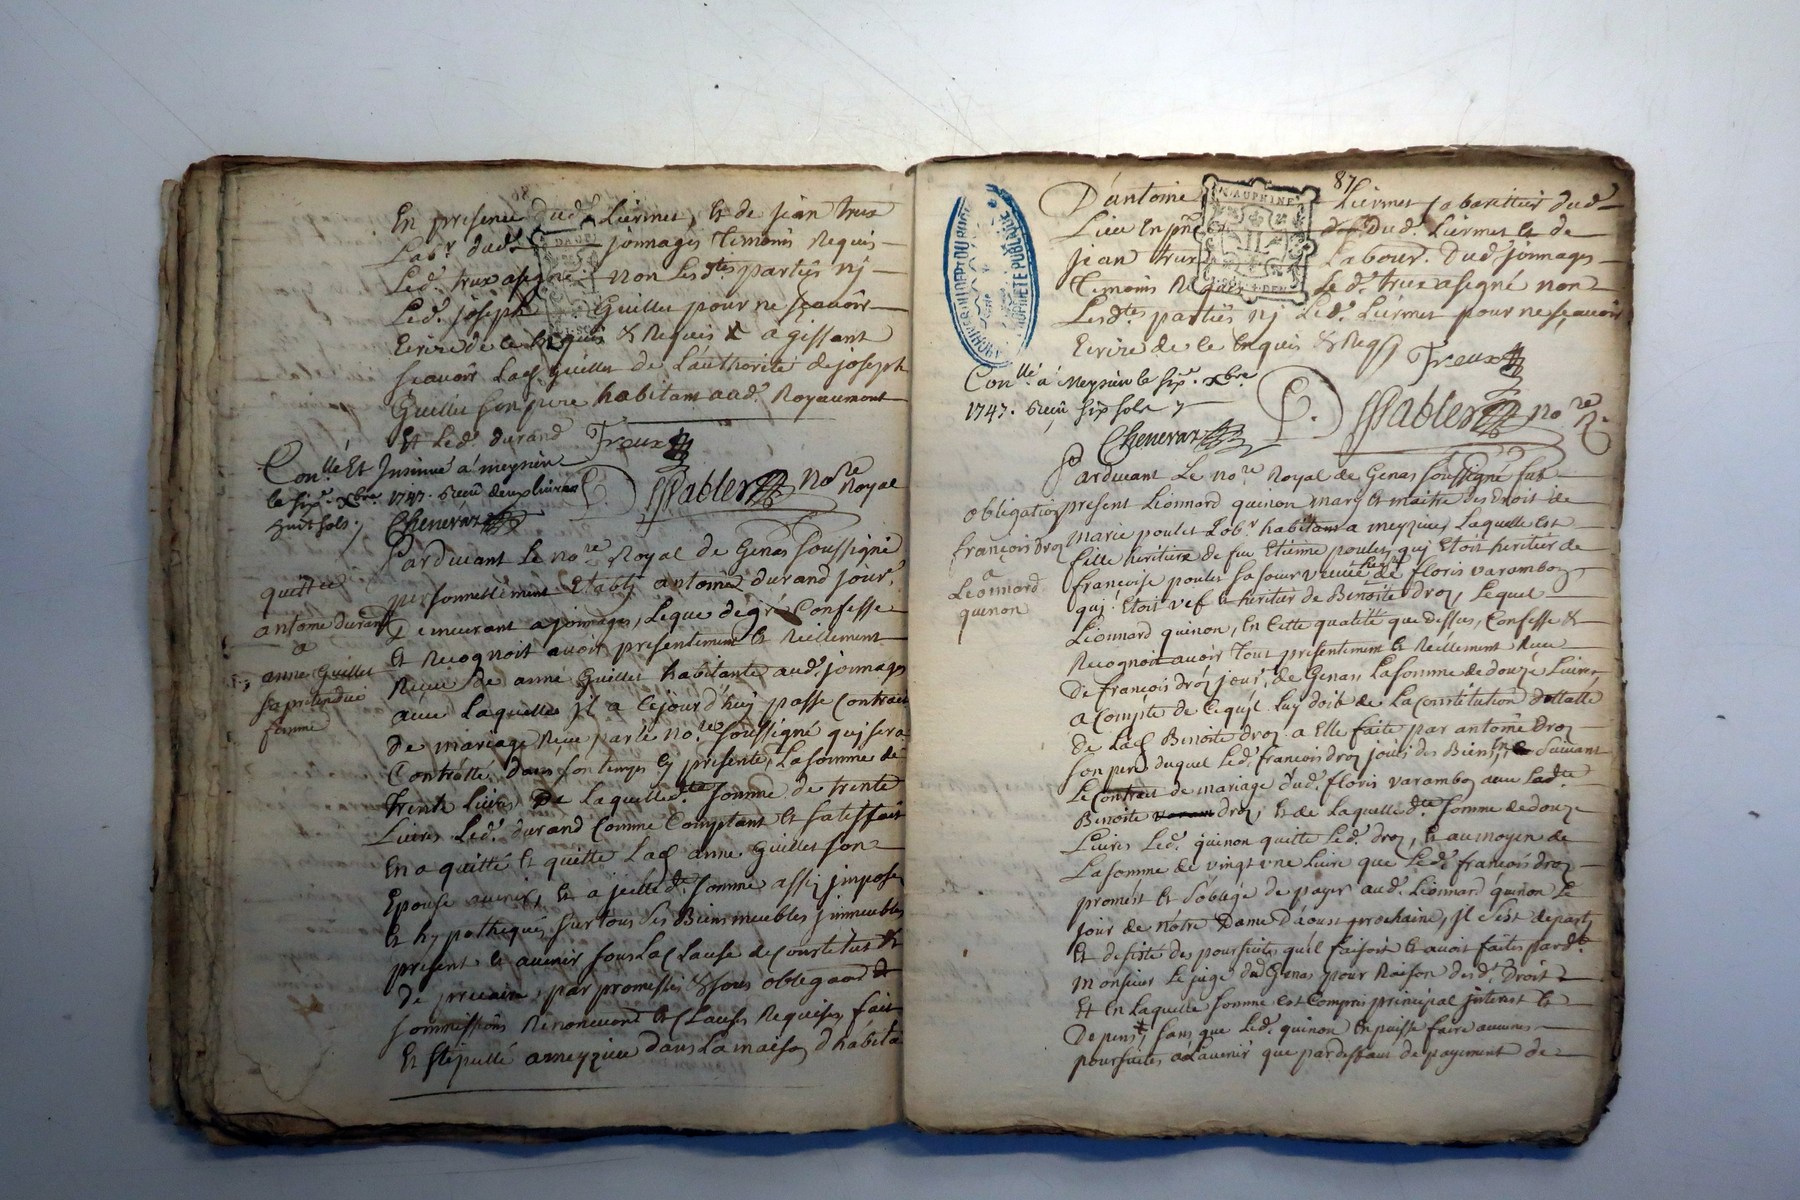 En presence dud. Liermet, et de jean trux
Lab.r dud. jonnages temoins Requis
Led. trux asigné non Les d.tes parties nj
Led. joseph Guillet pour ne scavoir
Ecrire de ce Enquis & Requis agissant
scavoir Lad. Guillet de Lauthorité de joseph
Guillet son pere habitant aud. Royaumont
Et Led. durand
Treux
Con.llé Et Insinué a meysieu
le six.e xbre 1747. Reçu deux livres
huit sols.
Chenevaz
P. Pablet No.re Royal
quittée
antoine durand
a
anne Guillet
sa pretendüe
femme
Pardevant Le no.re Royal de Genas soussigné
personnellement Etably antoine durand jour.r
Demeurant a jonnages, Lequel de gré Confesse
Et Recognoit avoir presentement et Réellement
Receu de anne Guillet habitante aud. jonnages
avec Laquelle jl a cejourd'huy passé Contract
De mariage Reçu par le no.re soussigné quj sera
Contrôllé dans son temps Ey presente, La somme de
trente Livres De Laquelle d.te somme de trente
Livres Led. durand Comme Comptant et satisfait
En a quitté et quitte Lad. anne Guillet son
Epouse avenir, et a jcelle d. somme assis jmposé
Et hypothequé, sur tous ses Biens meubles jmmeubles
present et avenir sous La Clause de Constitut &
De precaire, par promesses & sous obligaon de
sommissions Renonceons et Clauses Requises, fait
Et stipullé a meyzieu dans La maison d'habita
87
DAUPHINE
D'antoine Liermet Cabaretier dud.
Lieu En pñce dud. Liermet et de
jean trux Labour. Dud. jonnages
Temoins Requis Led. trux asigné non
Les d.tes parties nj Led. Liermet pour ne scavoir
Ecrire de ce Enquis & Req
Treux
Con.llé a Meysieu le six.e xbre
1747. Reçu six sols
Chenevaz
P. Pablet no.re R.
obligation
françois Droz
a
Léonnard
quinon
Pardevant Le no.re Royal de Genas soussigné fut
present Lionnard quinon mary et maitre des droit de
marie poulet Lab.r habitant a meyzieu, Laquelle est
fille heritiere de feu Etienne poulet, quj Etoit heritier de
françoise poulet sa sœur veuve de floris varamboz
quj Etoit vef et heritier de Benoite droz, Lequel
Lionnard quinon, En Cette qualité que dessus, Confesse &
Recognoit avoir Tout presentement et Réellement Receu
De françois dróz jour.r de Genas La somme de douze Livres
a Compte de Ce qu'jl Luy doit de La Constitution dottalle
de Lad. Benoite droz a Elle faite par antoine droz
son pere duquel Led. françois droz jouit des Biens, suivant
Le Contract de mariage dud. floris varamboz avec Lad.te
Benoite droz, et de Laquelle d.te somme de douze
Livres Led. quinon quitte Led. droz, et au moyen de
La somme de vingt vne Livre que Led. françois droz
promest et s'oblege de payer aud. Lionnard quinon Le
jour de nôtre Dame D'aoust prochaine, jl s'est departy
Et desisté des poursuites quil faisoit et avoit faites pard.t
monsieur Le juge dud. Genas pour Raison desd. Droit
Et En Laquelle somme est Compris principal jnterest et
Depens, sans que Led. quinon En puisse faire aucunes
poursuites a L'avenir que par deffaut de payement de